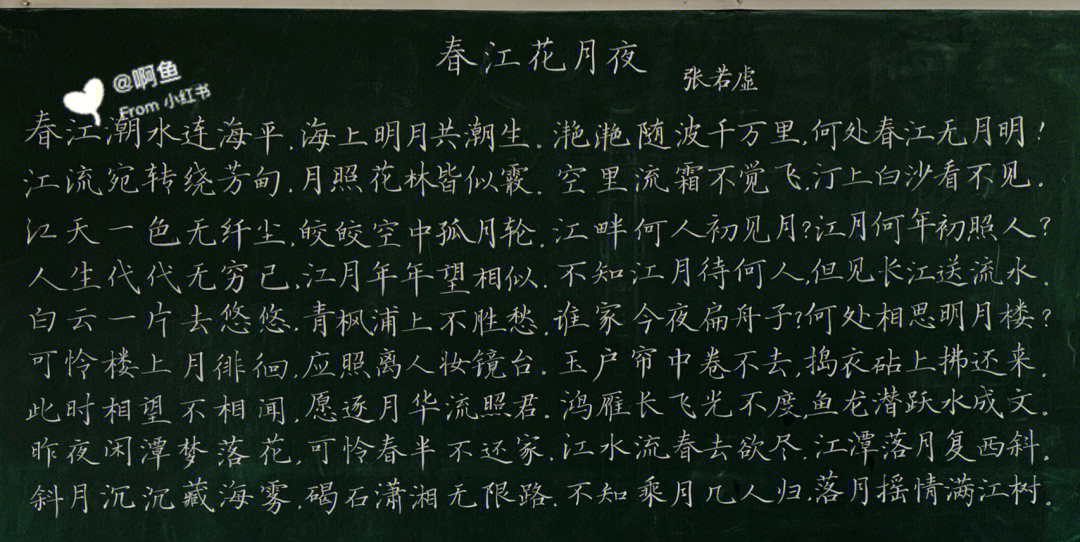 春江花月夜
张若虚
@啊鱼
From 小红书
春江潮水连海平.海上明月共潮生.滟滟随波千万里,何处春江无月明!
江流宛转绕芳甸.月照花林皆似霰.空里流霜不觉飞,汀上白沙看不见.
江天一色无纤尘,皎皎空中孤月轮.江畔何人初见月?江月何年初照人?
人生代代无穷已,江月年年望相似.不知江月待何人,但见长江送流水.
白云一片去悠悠.青枫浦上不胜愁.谁家今夜扁舟子?何处相思明月楼?
可怜楼上月徘徊,应照离人妆镜台.玉户帘中卷不去,捣衣砧上拂还来.
此时相望不相闻,愿逐月华流照君.鸿雁长飞光不度,鱼龙潜跃水成文.
昨夜闲潭梦落花,可怜春半不还家.江水流春去欲尽.江潭落月复西斜.
斜月沉沉藏海雾.碣石潇湘无限路.不知乘月几人归.落月摇情满江树.